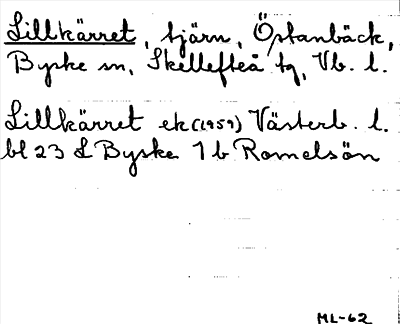 Lillkärret, tjärn, Östanbäck,
Byske sn, Skellefteå tg, Vb. l.
Lillkärret ek (1959) Västerb. l.
bl 23 L Byske 7 b Romelsön
ML-62